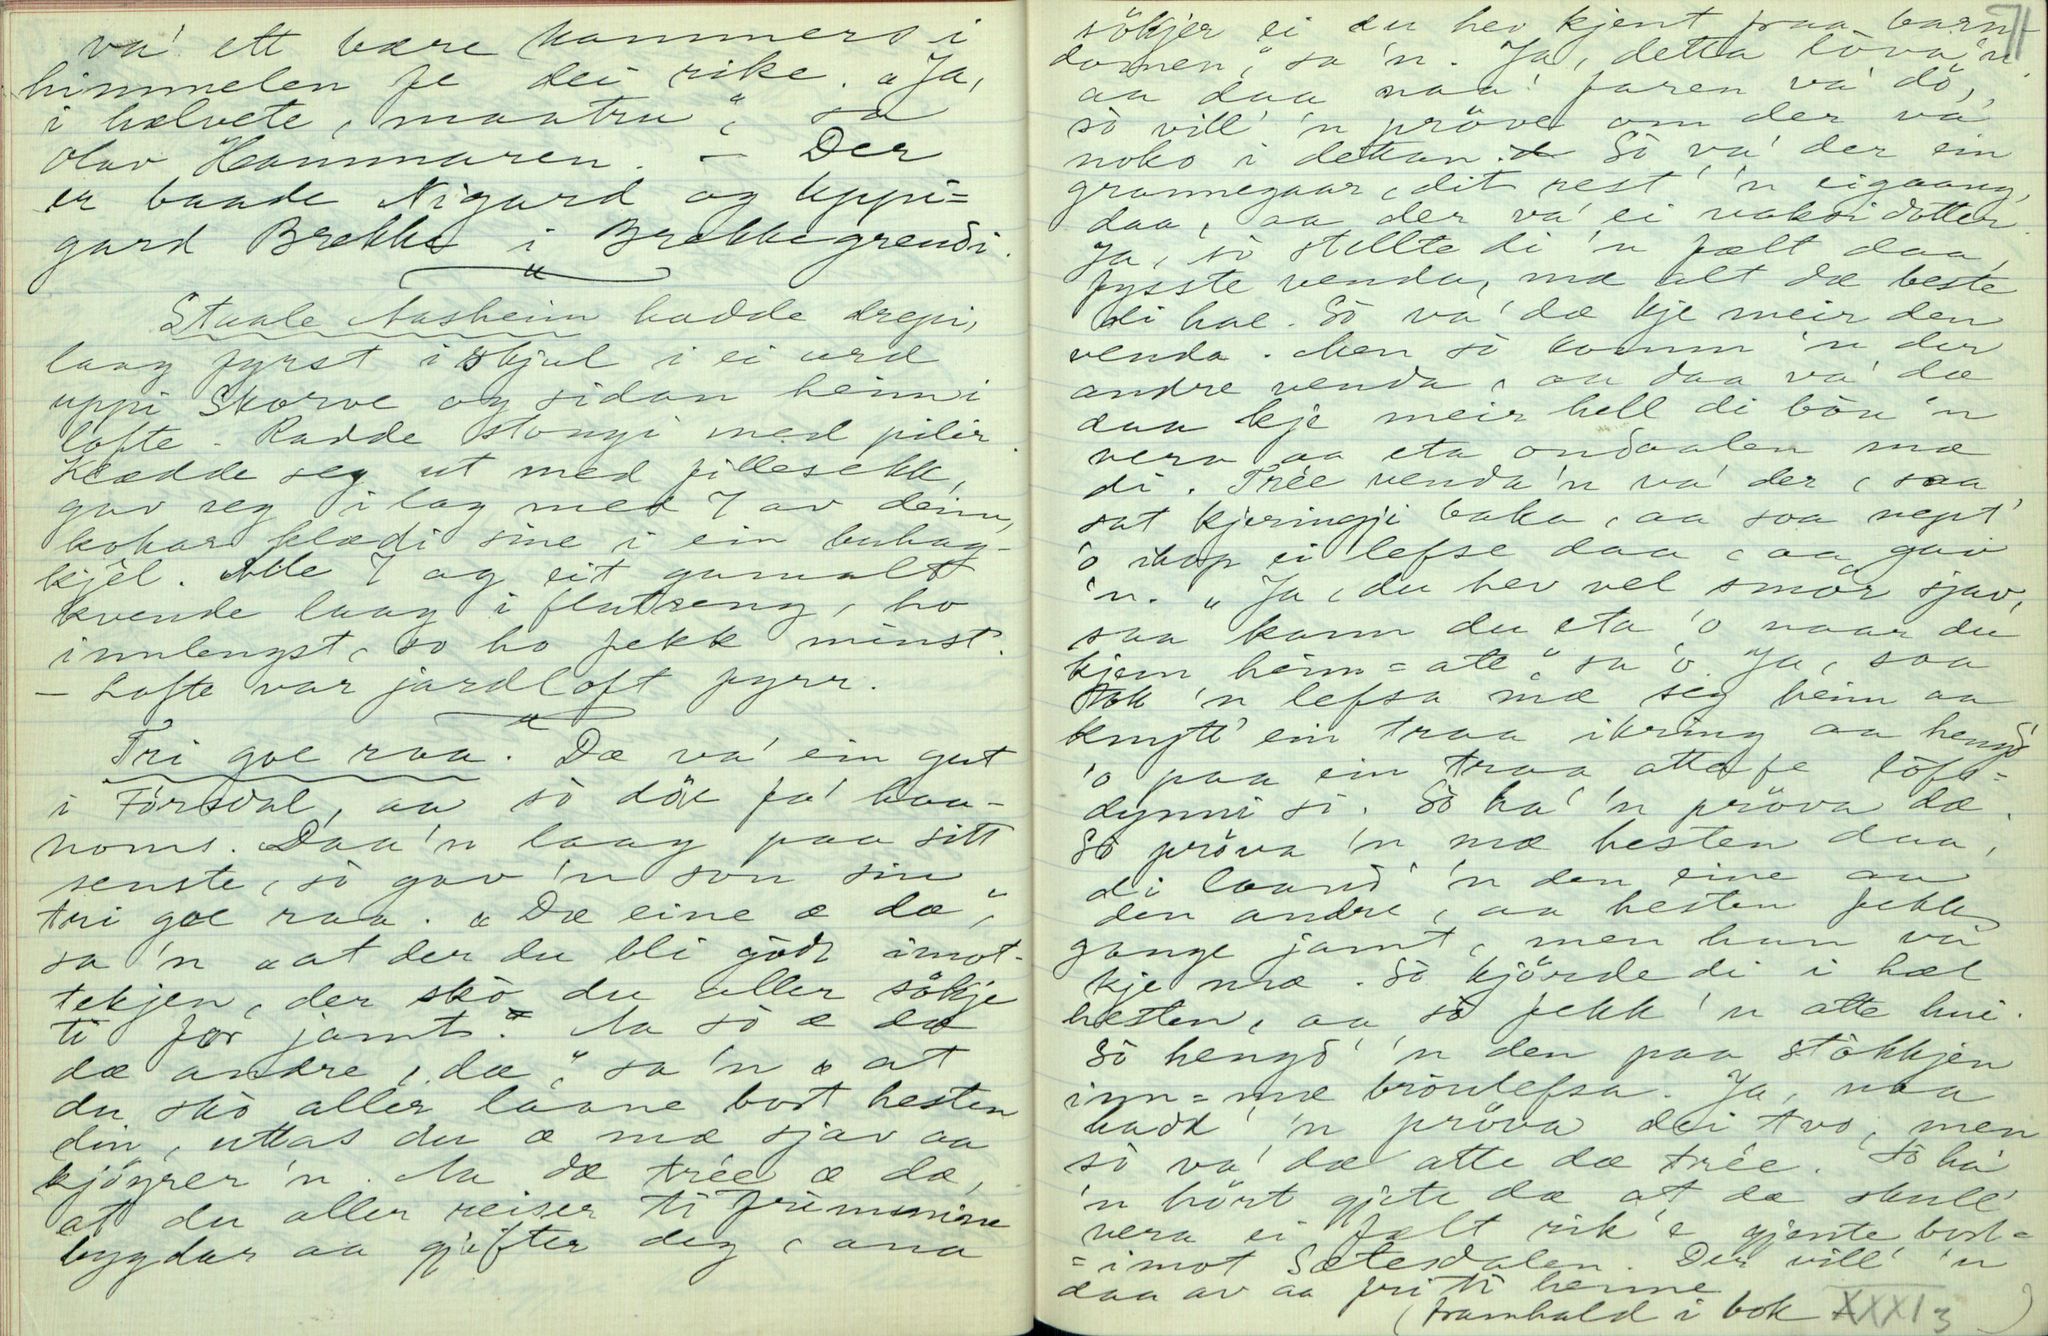 va' ett bære kammers i
himmelen fe dei rike. „Ja,
i hælvete, maatru", sa
Olav Hammaren. – Der
er baade Nigard og Uppi=
gard Brekke i Brekkegrendi.
Staale Aasheim hadde drepi,
laag fyrst i skjul i ei urd
uppi Skorve og sidan heimi
lofte. Radde stongji med pilir.
Klædde seg ut med fillesekk,
gav seg i lag med 7 av deim,
kokar klædi sine i ein buhag-
kjel. Alle 7 og eit gamalt
kvende laag i flatseng, ho
innlengst, so ho fekk minst.
– Lofte var jardloft fyrr.
Tri goe raa. Dæ va' ein gut
i Fórsdal, aa sò döe fa' haa-
noms. Daa 'n laag paa sitt
senste, sò gav 'n son sin
tri goe raa. „Dæ eine æ dæ",
sa 'n „at der du bli gódt imot-
tekjen, der skò du aller sökje
ti for jamt." Aa sò æ dæ
dæ andre, dæ", sa 'n „at
du skò aller laane bort hesten
din, uttas du æ mæ sjav aa
kjöyrer 'n. Aa dæ trée æ dæ,
at du aller reiser ti frimmine
bygdar aa gjifter deg, ana
71
sökjer ei du hev kjent fraa barn-
domen", sa 'n. Ja, detta lòva 'n.
aa daa naa' faren va' dö,
sò vill' 'n pröve om der va'
noko i dettan. Sò va' der ein
grannegaar, dit rest' 'n eigaang,
daa, aa der va' ei vaksi dotter.
Ja, sò stellte di 'n fælt daa,
fysste venda, mæ alt dæ beste
di hae. Sò va' dæ kje meir den
venda. Men sò komm 'n der
andre venda, aa daa va' dæ
daa kje meir hell di böu 'n
vera aa eta ondaalen mæ
di. Trée venda 'n va' der, saa
sat kjeringji baka, aa saa vept'
'o ihop ei lefse daa, aa gav
'n. „Ja, du hev vel smör sjav,
saa kann du eta 'o naar du
kjem heim=atte" sa 'o. Ja, saa
tok 'n lefsa mæ seg heim aa
knytt' ein traa ikring aa hengd'
'o paa ein traa attafe löfs-
dynni si. Sò ha' 'n pröva dæ.
Sò pröva 'n mæ hesten daa,
di laand' 'n den eine aa
den andre, aa hesten fekk
gange jamt, men han va'
kje mæ. Sò kjörde di i hæl
hesten, aa sò fekk 'n atte hui.
Sò hengd' 'n den paa stökkjen
inn=mæ bröulefsa. Ja, naa
hadd' 'n pröva dei tvo, men
sò va' dæ atte dæ trée. Sò ha'
'n hört gjete dæ at dæ skull'
vera ei fælt rik'e gjente bort=
=imot Sætesdalen. Der vill' 'n
daa av aa fri ti henne
(framhald i bok XXXI 3)